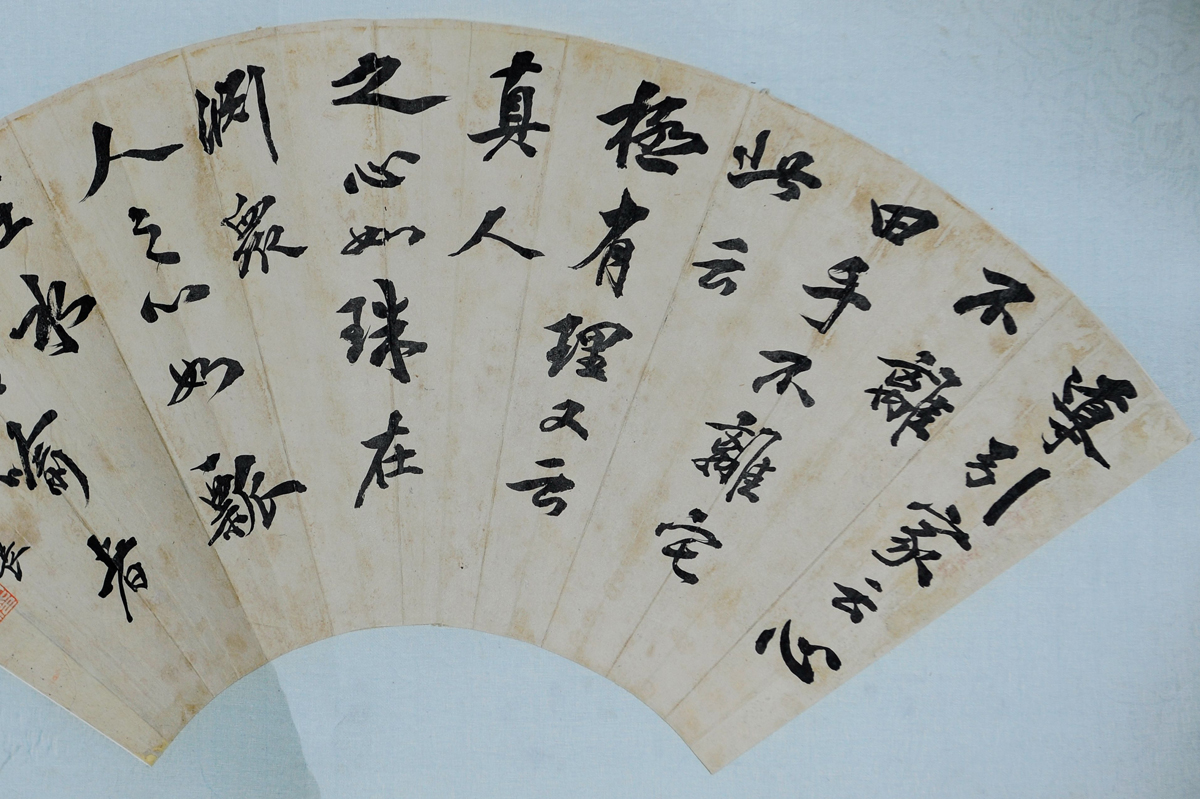 導引家云心
不離
田手不離宅
此云
極有理又云
真人
之心如珠在
淵衆
人之心如瓢
水
喻者